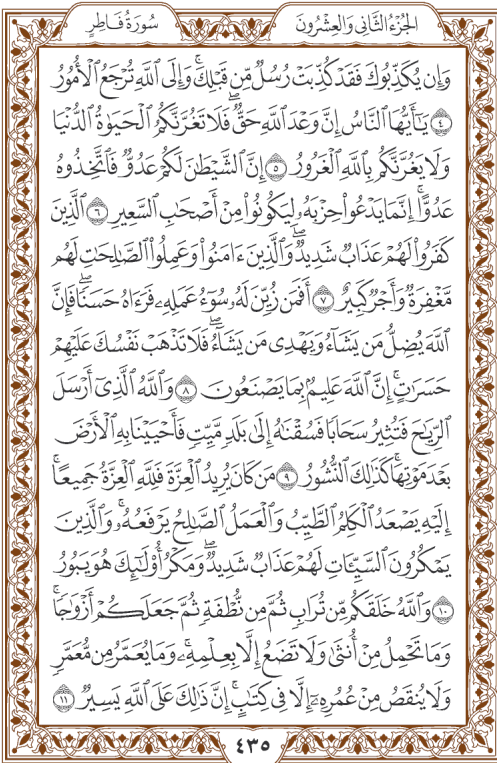 الجُزْءُ الثَّانِي وَالعِشْرُونَ
سُورَةُ فَاطِرٍ
وَإِن يُكَذِّبُوكَ فَقَدْ كُذِّبَتْ رُسُلٌ مِّن قَبْلِكَۚ وَإِلَى ٱللَّهِ تُرْجَعُ ٱلْأُمُورُ
٤ يَٰٓأَيُّهَا ٱلنَّاسُ إِنَّ وَعْدَ ٱللَّهِ حَقٌّۖ فَلَا تَغُرَّنَّكُمُ ٱلْحَيَوٰةُ ٱلدُّنْيَا
وَلَا يَغُرَّنَّكُم بِٱللَّهِ ٱلْغَرُورُ ٥ إِنَّ ٱلشَّيْطَٰنَ لَكُمْ عَدُوٌّ فَٱتَّخِذُوهُ
عَدُوًّاۚ إِنَّمَا يَدْعُوا۟ حِزْبَهُۥ لِيَكُونُوا۟ مِنْ أَصْحَٰبِ ٱلسَّعِيرِ ٦ ٱلَّذِينَ
كَفَرُوا۟ لَهُمْ عَذَابٌ شَدِيدٌۖ وَٱلَّذِينَ ءَامَنُوا۟ وَعَمِلُوا۟ ٱلصَّٰلِحَٰتِ لَهُم
مَّغْفِرَةٌ وَأَجْرٌ كَبِيرٌ ٧ أَفَمَن زُيِّنَ لَهُۥ سُوٓءُ عَمَلِهِۦ فَرَءَاهُ حَسَنًاۖ فَإِنَّ
ٱللَّهَ يُضِلُّ مَن يَشَآءُ وَيَهْدِى مَن يَشَآءُۖ فَلَا تَذْهَبْ نَفْسُكَ عَلَيْهِمْ
حَسَرَٰتٍۚ إِنَّ ٱللَّهَ عَلِيمٌۢ بِمَا يَصْنَعُونَ ٨ وَٱللَّهُ ٱلَّذِىٓ أَرْسَلَ
ٱلرِّيَٰحَ فَتُثِيرُ سَحَابًا فَسُقْنَٰهُ إِلَىٰ بَلَدٍ مَّيِّتٍ فَأَحْيَيْنَا بِهِ ٱلْأَرْضَ
بَعْدَ مَوْتِهَاۚ كَذَٰلِكَ ٱلنُّشُورُ ٩ مَن كَانَ يُرِيدُ ٱلْعِزَّةَ فَلِلَّهِ ٱلْعِزَّةُ جَمِيعًاۚ
إِلَيْهِ يَصْعَدُ ٱلْكَلِمُ ٱلطَّيِّبُ وَٱلْعَمَلُ ٱلصَّٰلِحُ يَرْفَعُهُۥۚ وَٱلَّذِينَ
يَمْكُرُونَ ٱلسَّيِّـَٔاتِ لَهُمْ عَذَابٌ شَدِيدٌۖ وَمَكْرُ أُو۟لَٰٓئِكَ هُوَ يَبُورُ
١٠ وَٱللَّهُ خَلَقَكُم مِّن تُرَابٍ ثُمَّ مِن نُّطْفَةٍ ثُمَّ جَعَلَكُمْ أَزْوَٰجًاۚ
وَمَا تَحْمِلُ مِنْ أُنثَىٰ وَلَا تَضَعُ إِلَّا بِعِلْمِهِۦۚ وَمَا يُعَمَّرُ مِن مُّعَمَّرٍ
وَلَا يُنقَصُ مِنْ عُمُرِهِۦٓ إِلَّا فِى كِتَٰبٍۚ إِنَّ ذَٰلِكَ عَلَى ٱللَّهِ يَسِيرٌ ١١
٤٣٥